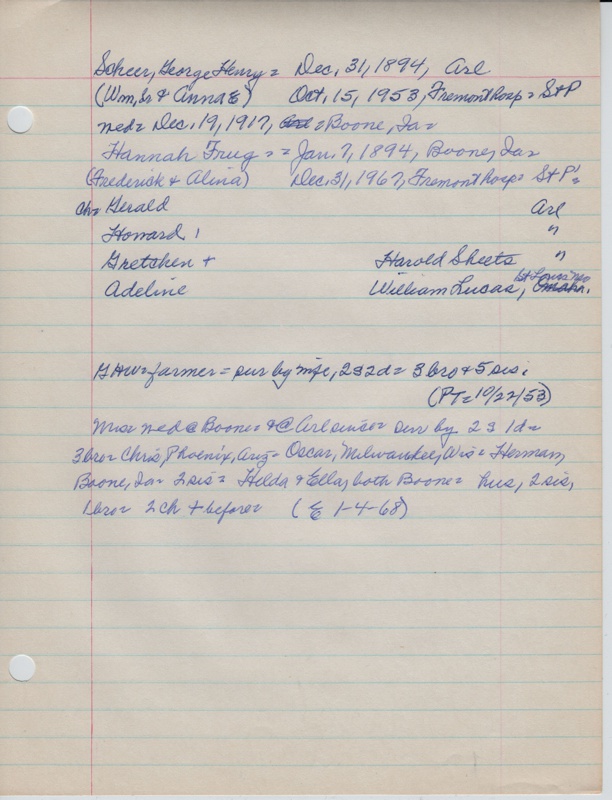 Scheer, George Henry = Dec. 31, 1894, Arl
(Wm, Sr & Anna E) Oct. 15, 1953, Fremont Hosp = St P
med = Dec. 19, 1917, = Boone, Ia =
Hannah Frug = = Jan. 7, 1894, Boone, Ia =
(Frederick & Alvina) Dec. 31, 1967, Fremont Hosp = St P =
ch = Gerald Arl
Howard "
Gretchen + Harold Sheets "
Adeline William Lucas, St Louis Mo
= farmer = sur by wife, 2 s 2 d = 3 bro & 5 sis.
(PT = 10/22/53)
Mrs = med @ Boone = & @ Arl since = sur by 2 s 1 d =
3 bro = Chris, Phoenix, Ariz = Oscar, Milwaukee, Wis = Herman,
Boone, Ia = 2 sis = Hilda & Ella, both Boone = hus, 2 sis,
1 bro = 2 ch + before = (E 1-4-68)